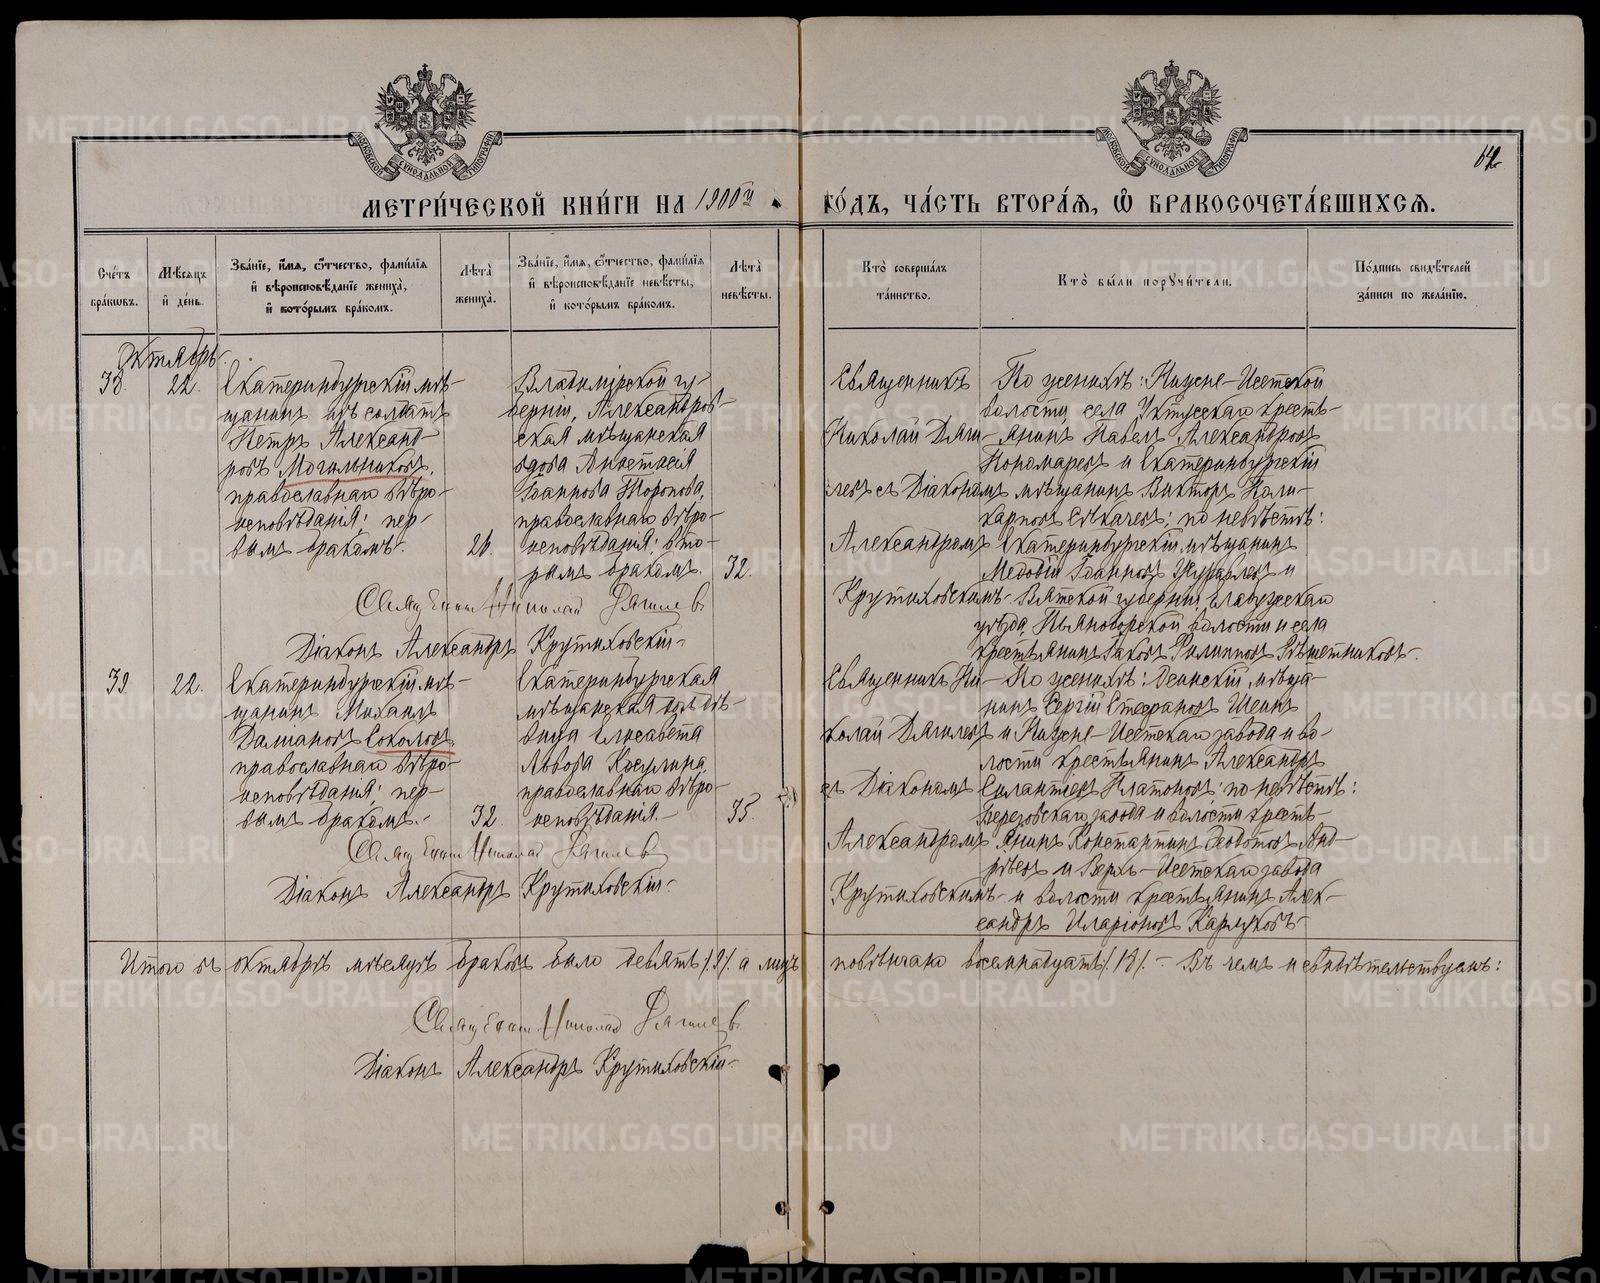 64
МЕТРИ́ЧЕСКОЙ КНИ́ГИ НА 1900й ГО́ДЪ, ЧА́СТЬ ВТОРА́Я, Ѽ БРАКОСОЧЕТА́ВШИХСЯ.
Сче́тъ бра́ковъ.
Мѣ́сяцъ и҆ де́нь.
Зва́нїе, и҆́мя, ѻ҆́тчество, фами́лїя и҆ вѣроисповѣ́данїе жениха̀, и҆ кото́рымъ бра́комъ.
Лѣ́та жениха̀.
Зва́нїе, и҆́мя, ѻ҆́тчество, фами́лїя и҆ вѣроисповѣ́данїе невѣ́сты, и҆ кото́рымъ бра́комъ.
Лѣ́та невѣ́сты.
Кто̀ соверша́лъ та́инство.
Кто̀ бы́ли порꙋчи́тели.
По́дпись свидѣ́телей за́писи по жела́нїю.
Октябрь.
38.
22.
Екатеринбургскій мѣ-
щанинъ изъ солдатъ
Петръ Александ-
ровъ Могильниковъ,
православнаго вѣро-
исповѣданія; пер-
вымъ бракомъ.
26.
Владимірской гу-
берніи, Александров-
ская мѣщанская
вдова Анастасія
Іоаннова Торопова,
православнаго вѣро-
исповѣданія; вто-
рымъ бракомъ.
32.
Священникъ
Николай Дяги-
левъ съ Діакономъ
Александромъ
Крутиховскимъ
По женихѣ: Нижне-Исетской
волости села Уктусскаго кресть-
янинъ Павелъ Александровъ
Пономаревъ и Екатеринбургскій
мѣщанинъ Викторъ Поли-
карповъ Сѣкачевъ; по невѣстѣ:
Екатеринбургскій мѣщанинъ
Іоанновъ Журавлевъ и
Вятской губерніи, Елабужскаго
уѣзда, Пьяноборской волости и села
крестьянинъ Іаковъ Филипповъ Рѣшетниковъ.
Священникъ Николай Дягилевъ
Діаконъ Александръ Крутиховскій
39.
22.
Екатеринбургскій мѣ-
щанинъ Михаилъ
Даміановъ Соколовъ,
православнаго вѣро-
исповѣданія; пер-
вымъ бракомъ.
32.
Екатеринбургская
мѣщанская дѣ-
вица Елисавета
Львова Косулина,
православнаго вѣро-
исповѣданія.
35.
Священникъ Ни-
колай Дягилевъ
съ Діакономъ
Александромъ
Крутиховскимъ
По женихѣ: Осинскій мѣща-
нинъ Сергій Стефановъ Шеинъ
и Нижне-Исетскаго завода и во-
лости крестьянинъ Александръ
Силантіевъ Платоновъ; по невѣстѣ:
Березовскаго завода и волости кресть-
янинъ Константинъ Ѳеодотовъ Анд-
реевъ и Верхъ-Исетскаго завода
и волости крестьянинъ Алек-
сандръ Иларіоновъ Кармуковъ
Священникъ Николай Дягилевъ
Діаконъ Александръ Крутиховскій
Итого въ октябрѣ мѣсяцѣ браковъ было девять /9/. а лицъ повѣнчано восемнадцать /18/. - Въ чемъ и свидѣтельствуемъ:
Священникъ Николай Дягилевъ
Діаконъ Александръ Крутиховскій
METRIKI.GASO-URAL.RU